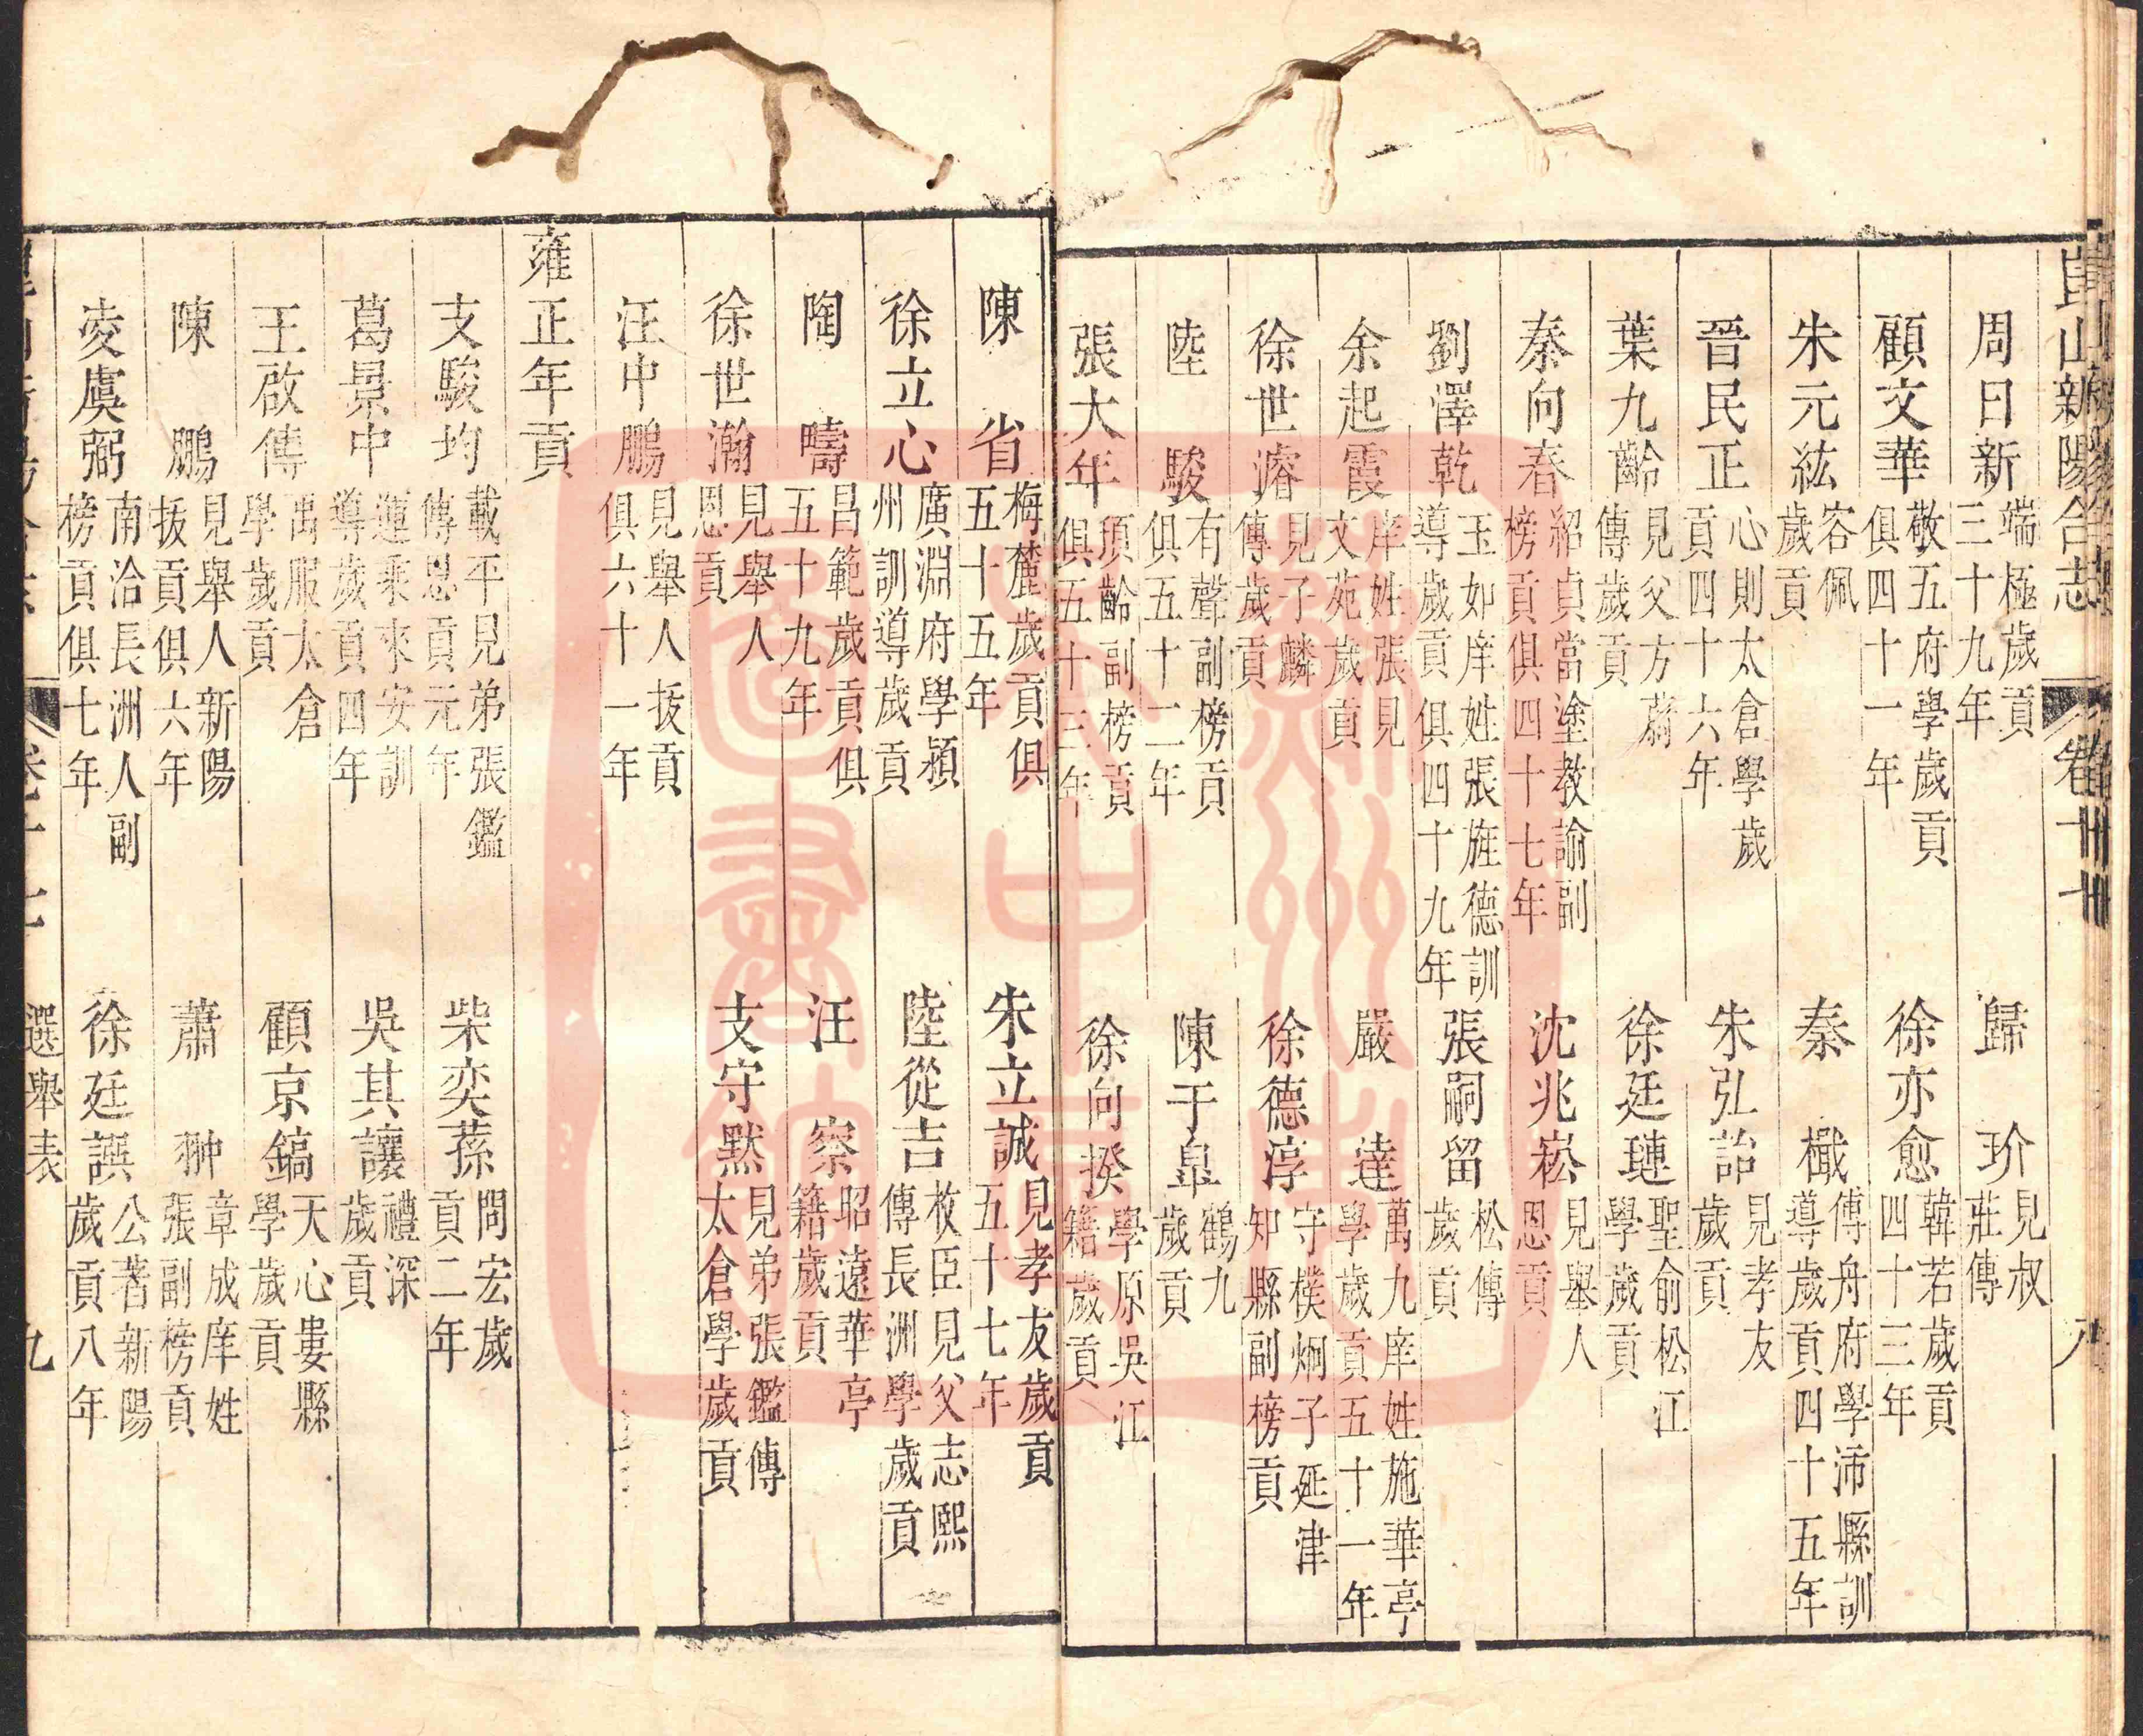 崑山新陽合志 卷二十七 八
周日新 端極歲貢三十九年 歸玠 見叔莊傳
顧文華 敬五府學歲貢俱四十一年 徐亦愈 韓若歲貢四十三年
朱元紘 容佩歲貢 秦檝 傅舟府學沛縣訓導歲貢四十五年
晉民正 心則太倉學歲貢四十六年 朱弘詒 見孝友歲貢
葉九齡 見父方蔚傳歲貢 徐廷璉 聖俞松江學歲貢
秦向春 紹貞當塗教諭副榜貢俱四十七年 沈兆崧 見舉人恩貢
劉澤乾 玉如庠姓張旌德訓導歲貢俱四十九年 張嗣留 松傳歲貢
余起霞 庠姓張見文苑歲貢 嚴達 萬九庠姓施華亭學歲貢五十一年
徐世濬 見子麟傳歲貢 徐德淳 守樸炯子延津知縣副榜貢
陸駿 有聲副榜貢俱五十二年 陳于臯 鶴九歲貢
張大年 頂齡副榜貢俱五十三年 徐向揆 學原吳江籍歲貢
陳省 梅麓歲貢俱五十五年 朱立誠 見孝友歲貢五十七年
徐立心 廣淵府學潁州訓導歲貢 陸從吉 枚臣見父志熙傳長洲學歲貢
陶疇 昌範歲貢俱五十九年 汪察 昭遠華亭籍歲貢
徐世瀚 見舉人恩貢 支守默 見弟張鑑傳太倉學歲貢
汪中鵬 見舉人拔貢俱六十一年
雍正年貢
支駿均 載平見弟張鑑傳恩貢元年 柴奕蓀 問宏歲貢二年
葛景中 運乘來安訓導歲貢四年 吳其讓 禮深歲貢
王啟傳 禹服太倉學歲貢 顧京鎬 天心婁縣學歲貢
陳鵬 見舉人新陽拔貢俱六年 蕭翀 章成庠姓張副榜貢
凌虞弼 南洽長洲人副榜貢俱七年 徐廷譔 公著新陽歲貢八年
選舉表 九